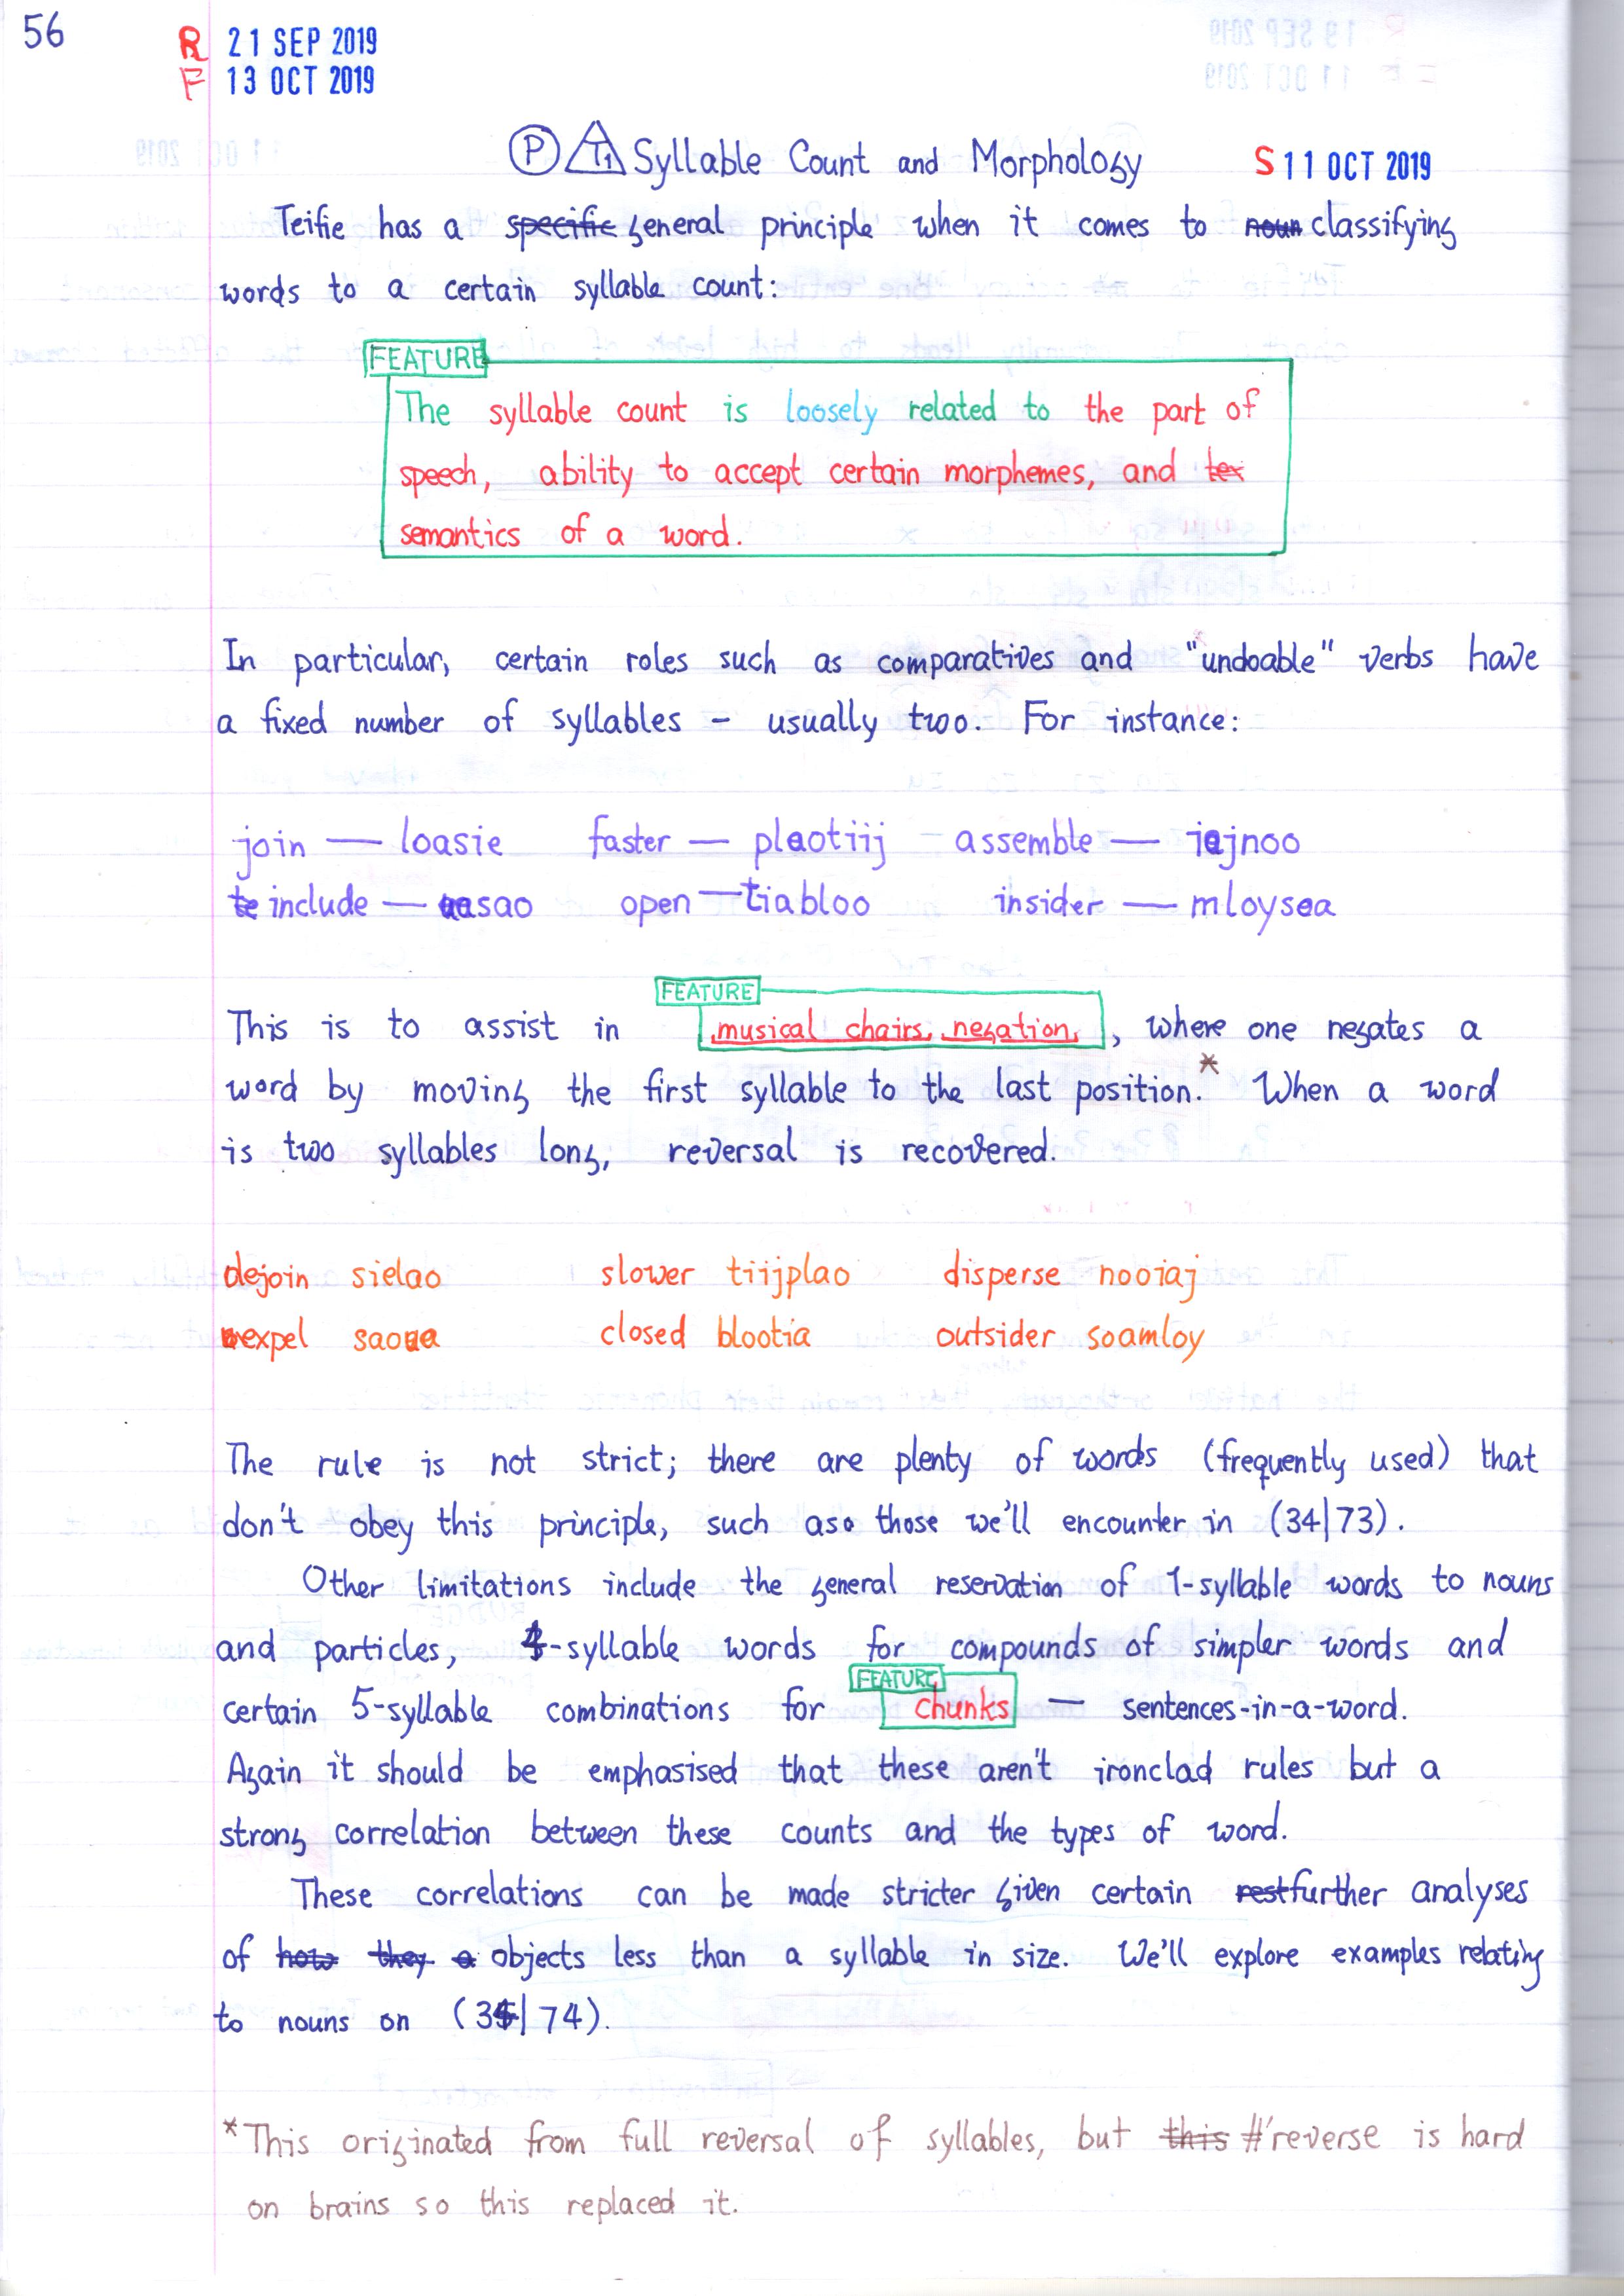 56
R 21 SEP 2019
F 13 OCT 2019
P T1 Syllable Count and Morphology S 11 OCT 2019
Teifie has a specific general principle when it comes to noun classifying
words to a certain syllable count:
FEATURE
The syllable count is loosely related to the part of
speech, ability to accept certain morphemes, and tex
semantics of a word.
In particular, certain roles such as comparatives and "undoable" verbs have
a fixed number of syllables – usually two. For instance:
join — loasie faster — plaotiij assemble — iajnoo
include — sao open — tiabloo insider — mloysoa
FEATURE
This is to assist in musical chairs negation, where one negates a
word by moving the first syllable to the last position.* When a word
is two syllables long, reversal is recovered.
dejoin sielao slower tiijplao disperse nooiaj
expel saoua closed blootia outsider soamloy
The rule is not strict; there are plenty of words (frequently used) that
don't obey this principle, such as those we'll encounter in (34|73).
Other limitations include the general reservation of 1-syllable words to nouns
and particles, 4-syllable words for compounds of simpler words and
FEATURE
certain 5-syllable combinations for chunks — sentences-in-a-word.
Again it should be emphasised that these aren't ironclad rules but a
strong correlation between these counts and the types of word.
These correlations can be made stricter given certain rest further analyses
of how they a objects less than a syllable in size. We'll explore examples relating
to nouns on (34|74).
*This originated from full reversal of syllables, but this #'reverse is hard
on brains so this replaced it.